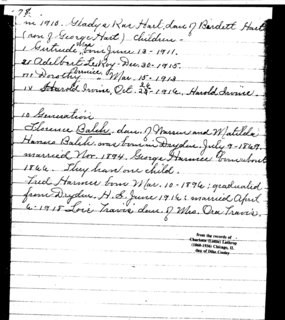 78.
m 1910. Gladys Rae Hart, dau. of Burdett Hart
(son of George Hart) Children -
I Gertrude born June 13-1911.
II Adelbert LeRoy Dec. 30-1915.
III Dorothy Bernice - Mar. 15-1913
IV Harold Irvine, Oct. 1914, Harold Irvine.
10 Generation
Florence Balch. dau. of Warren and Matilda
Balch was born in Dryden July 9-1869.
married Nov. 1894. George Harmee born about
1866. They have one child.
Fred Harmee born Mar. 10-1896; graduated
from Dryden H.S. June 1914; married April
6-1918 Lois Travis dau. of Mrs. Ora Travis.
from the records of
Charlotte (Liddie) Lathrop
Chicago, Il.